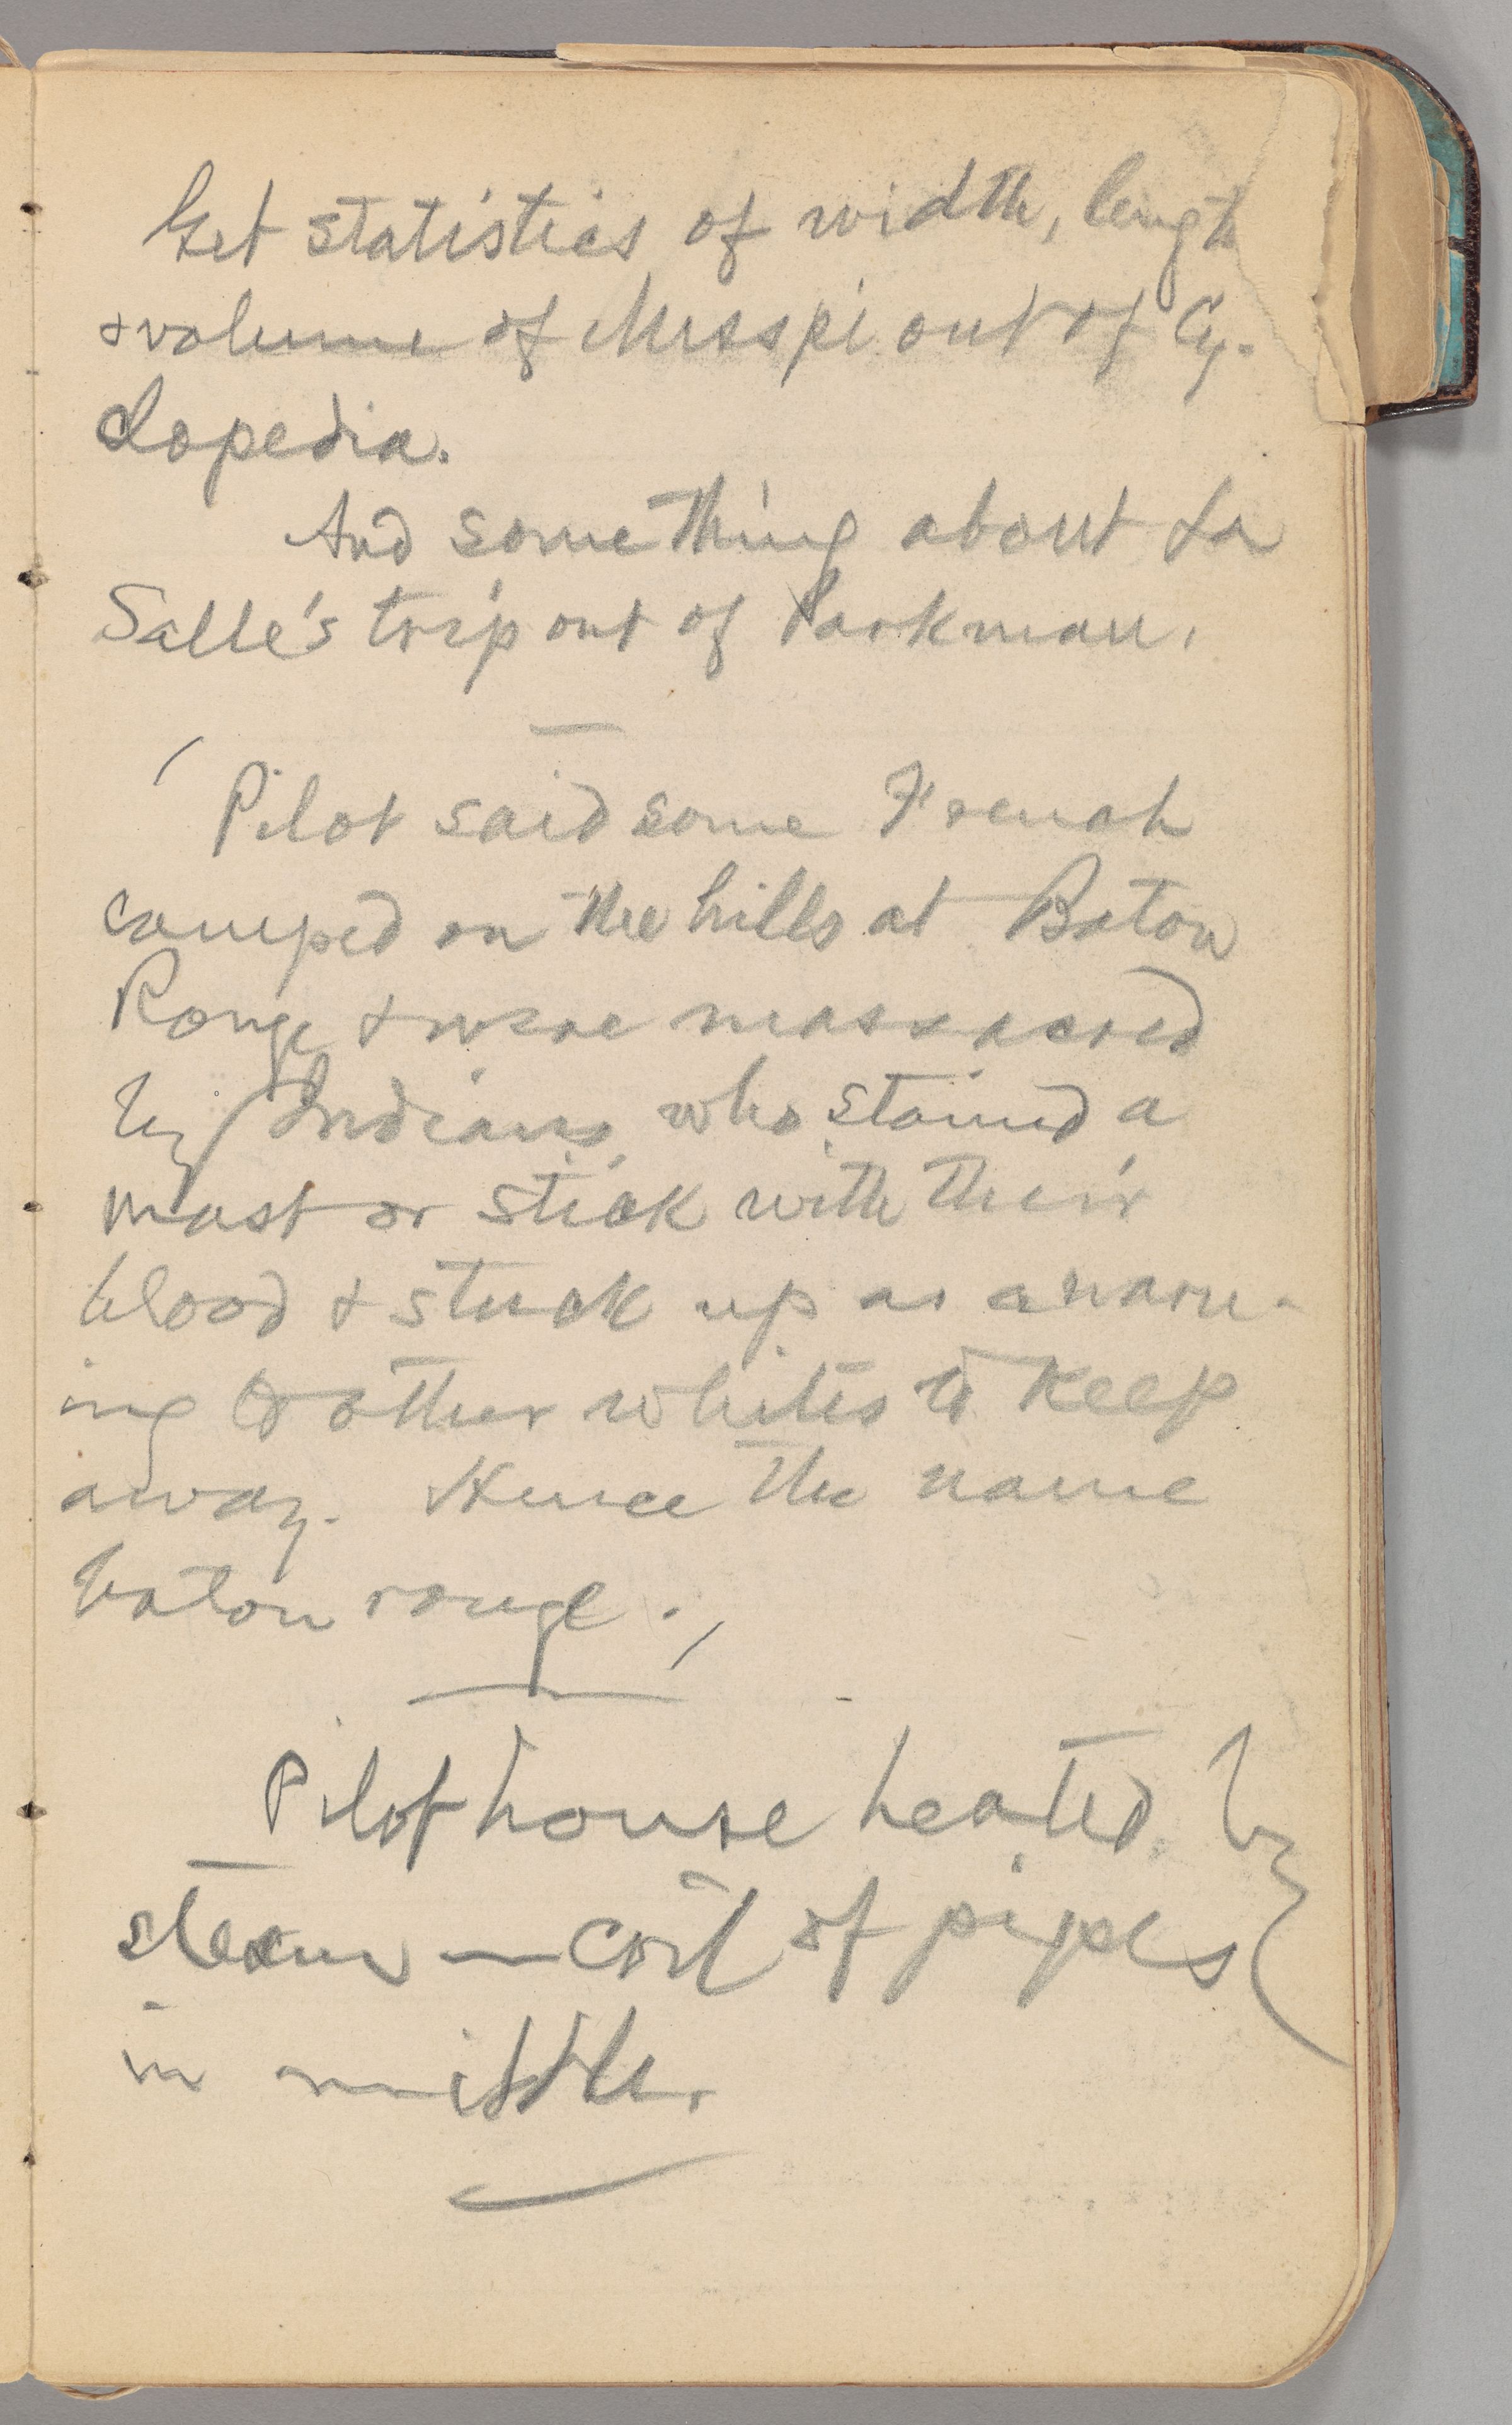 Get statistics of width, length
& volume of Misspi out of Cy-
clopedia.
And something about La
Salle's trip out of Parkman.
Pilot said some French
camped on the hills at Baton
Rouge & were massacred
by Indians, who stained a
mast or stick with their
blood & stuck up as a warn-
ing to other whites to keep
away. Hence the name
baton rouge.
Pilot house heated by
steam — coil of pipes
in middle.